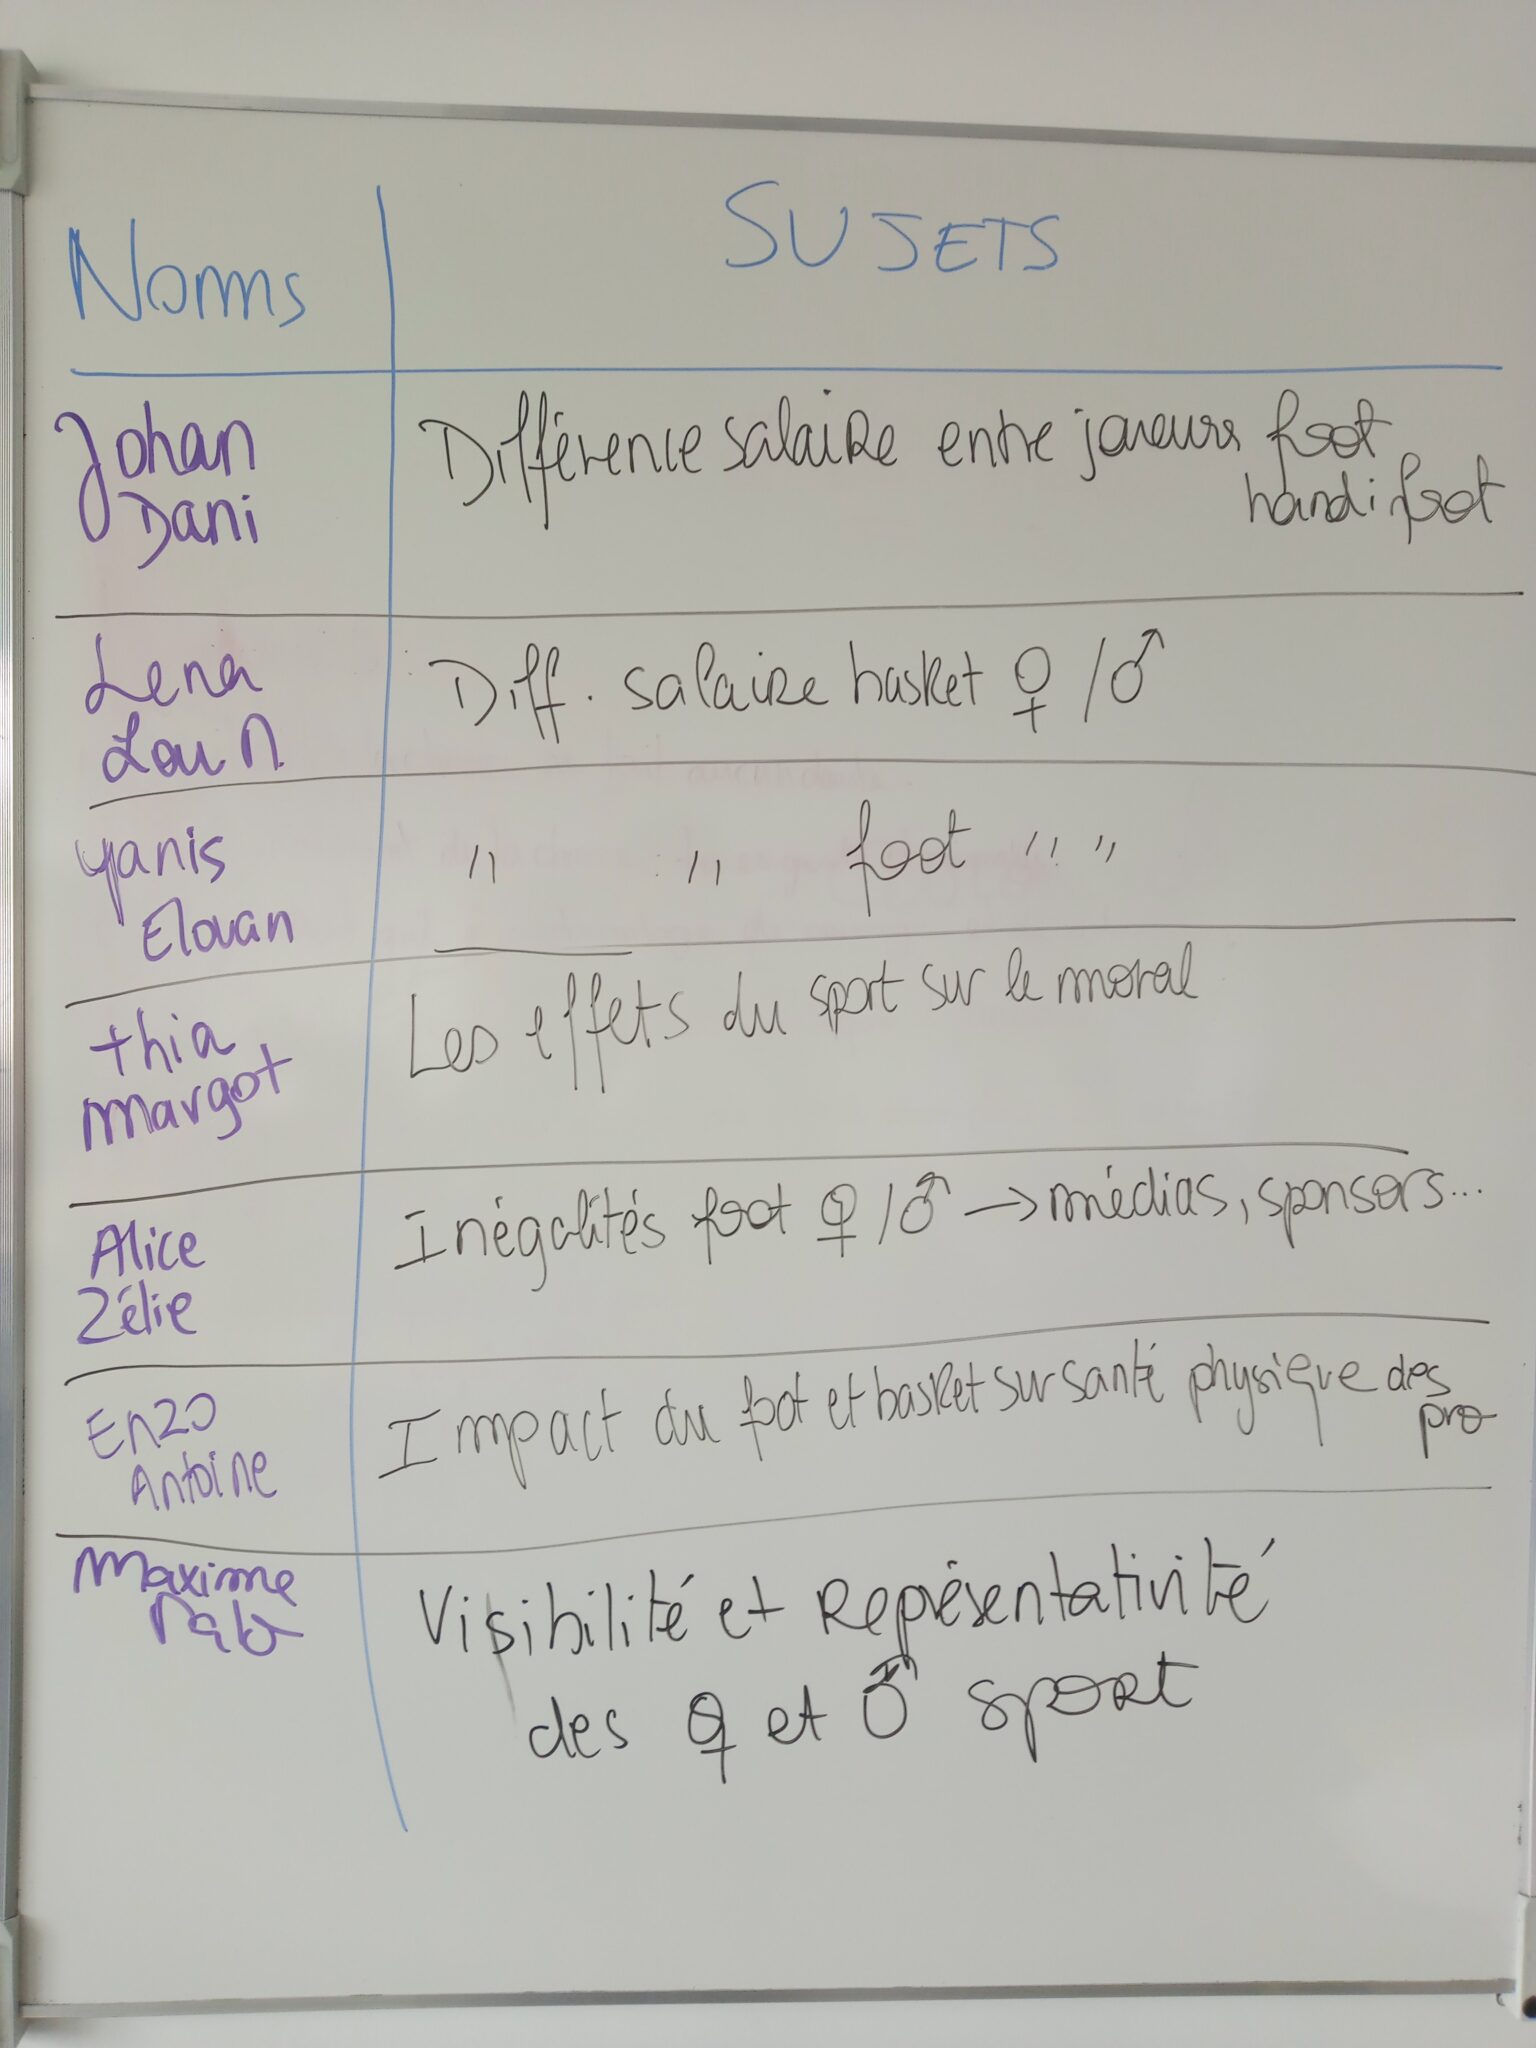 Noms
SUJETS
Johan
Dani
Différence salaire entre joueurs foot
handifoot
Lena
Lou N
Diff. salaire basket ♀ / ♂
Yanis
Elouan
" " foot " "
thia
margot
Les effets du sport sur le moral
Alice
Zélie
Inégalités foot ♀ / ♂ → médias, sponsors...
Enzo
Antoine
Impact du foot et basket sur santé physique des
pro
Maxime
Visibilité et Représentativité
des ♀ et ♂ sport